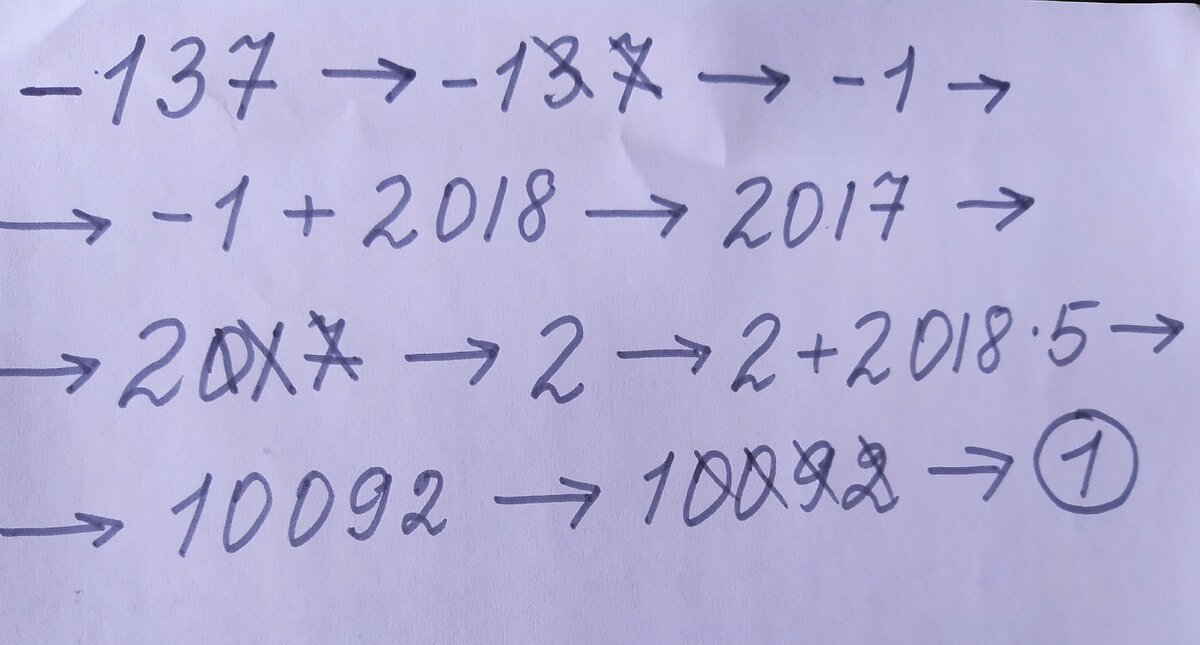 -137 → -137 → -1 →
→ -1 + 2018 → 2017 →
→ 2017 → 2 → 2+2018·5 →
→ 10092 → 10092 → 1